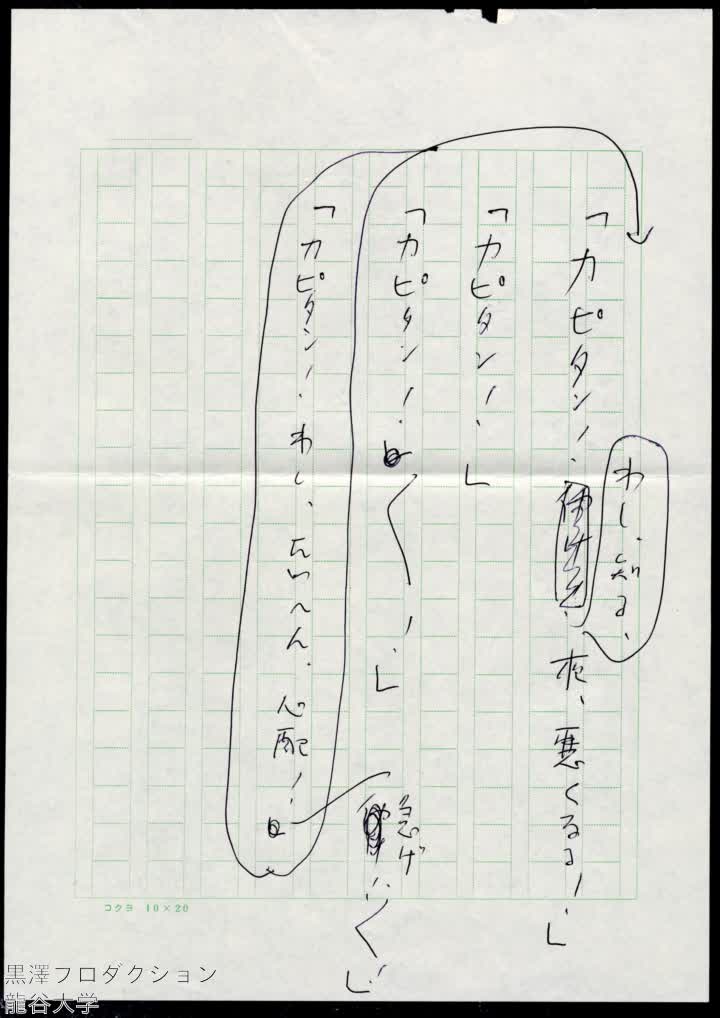 わし、知る、
「カピタン！、夜、悪くる！、」
「カピタン！、」
「カピタン！、
！、」
急げ
「カピタン！、わし、たいへん、心配！、
コクヨ 10×20
黒澤プロダクション
龍谷大学